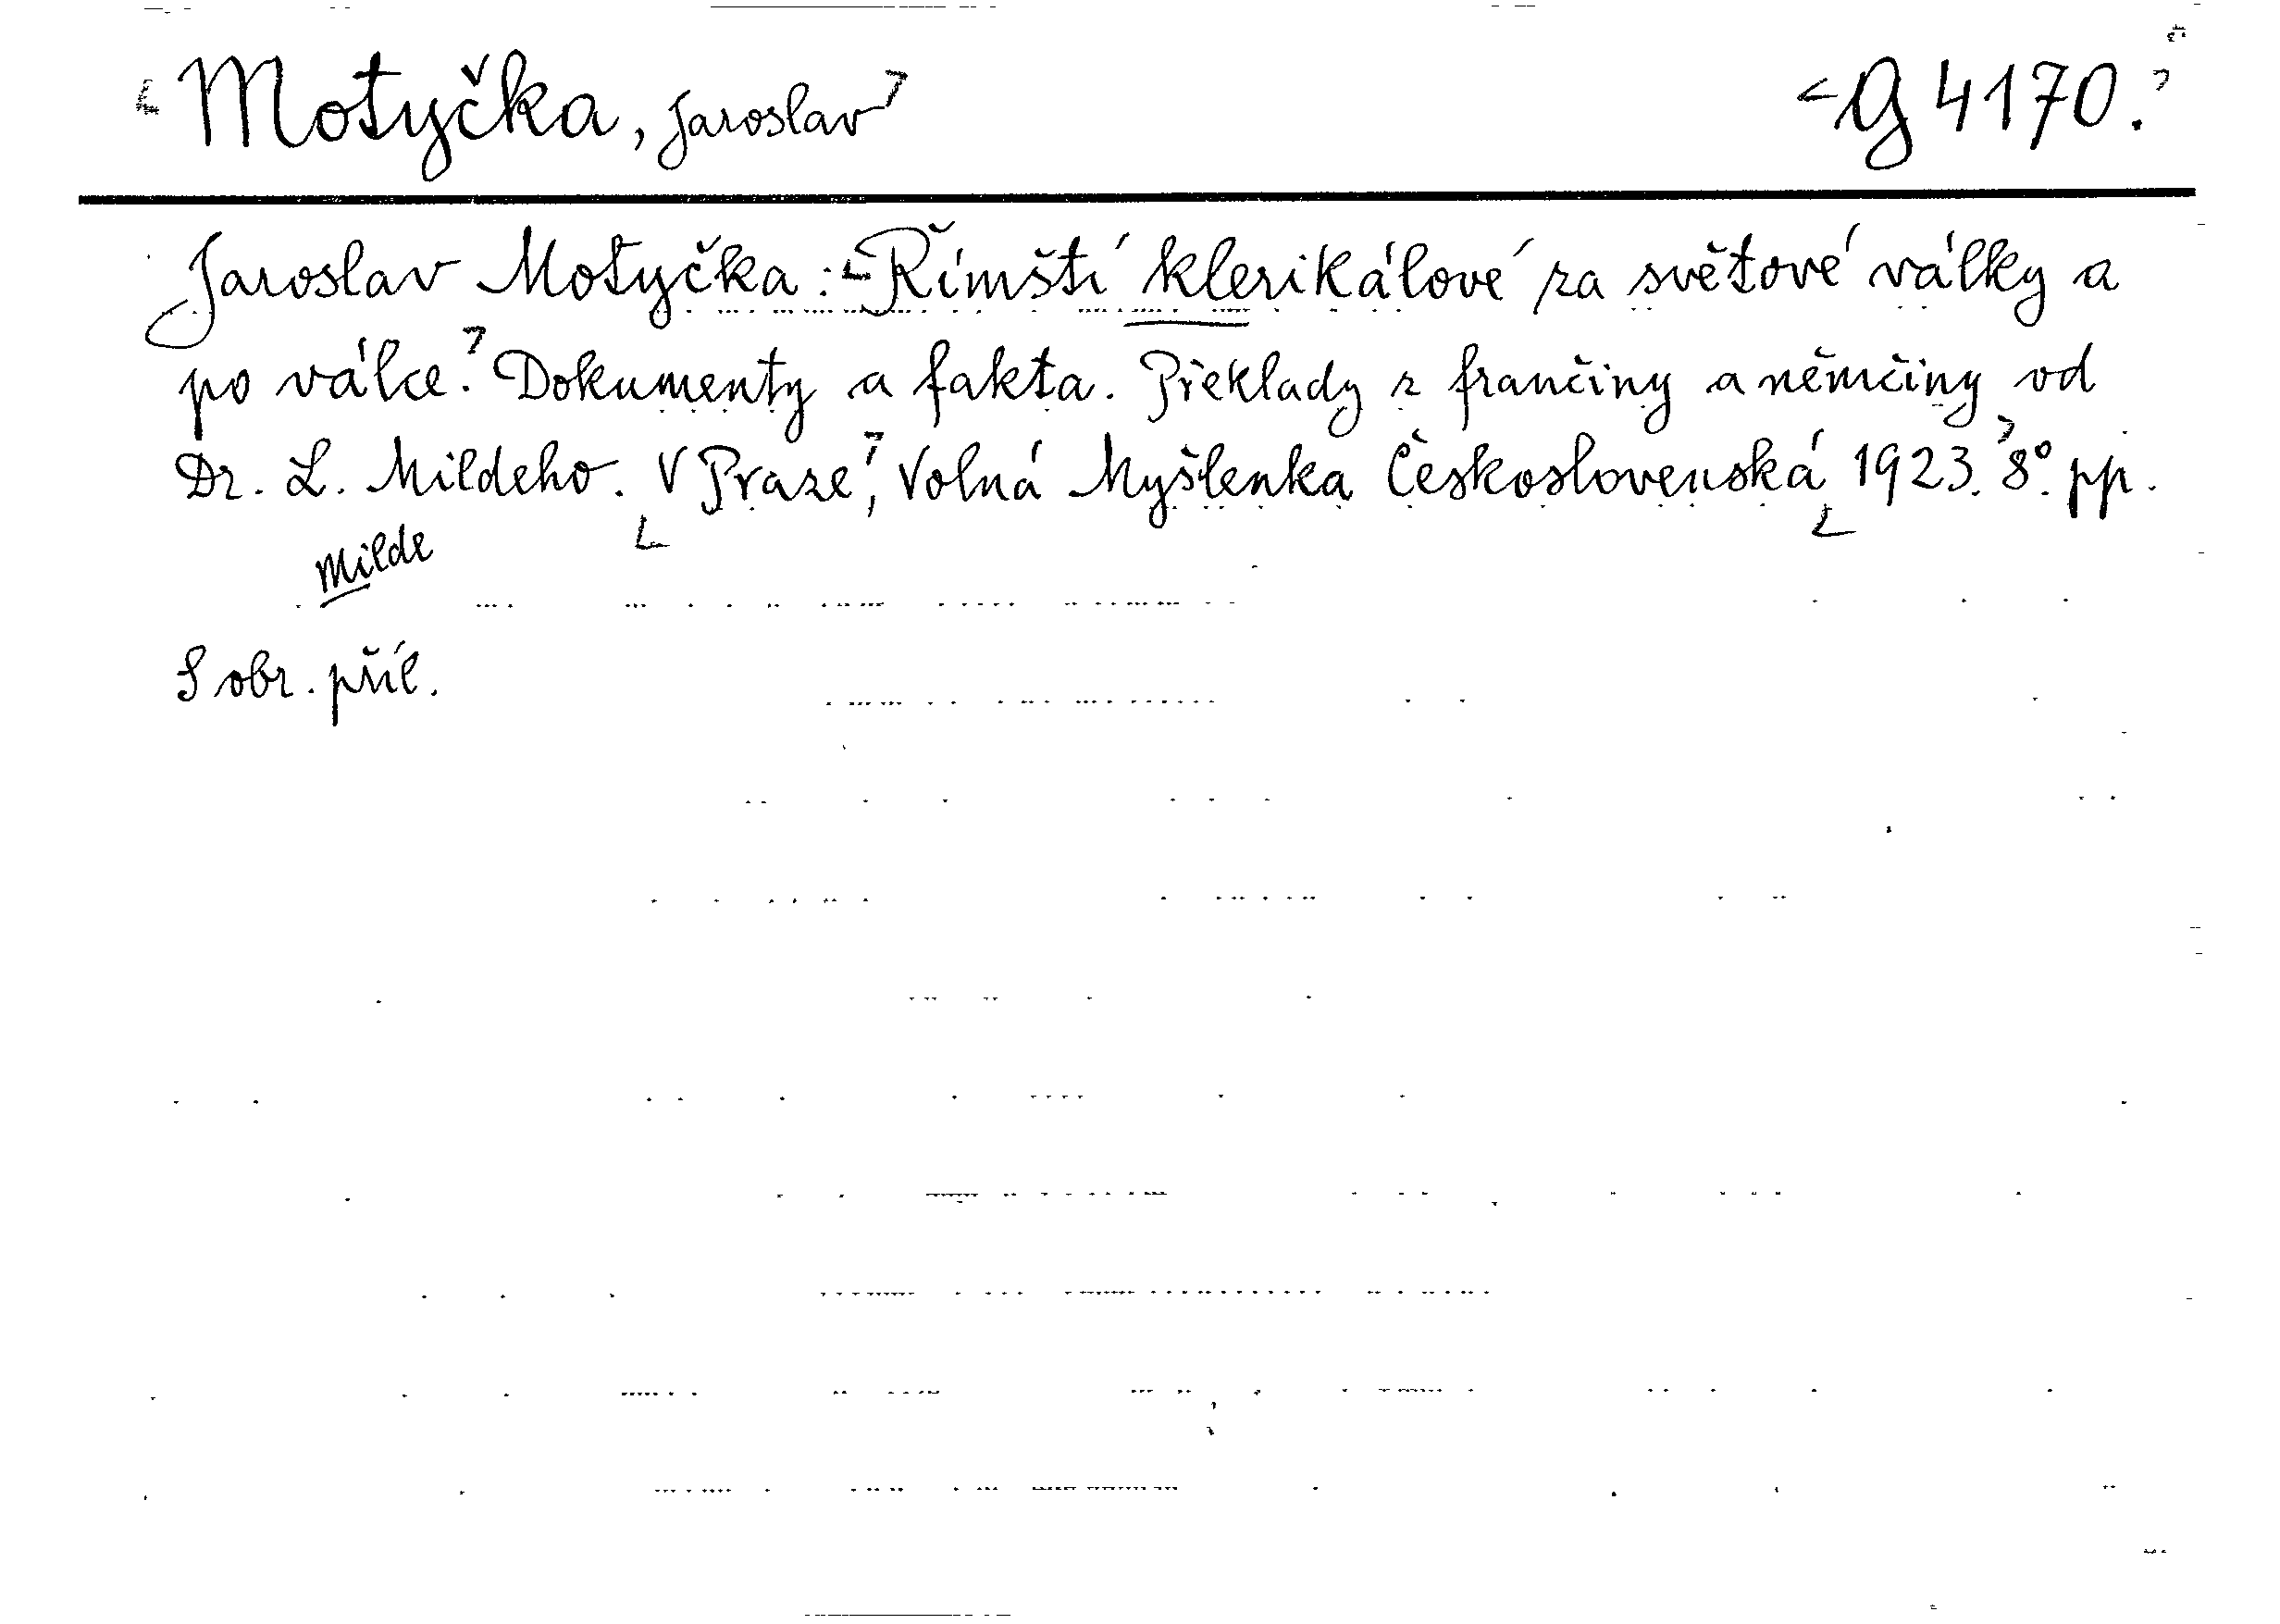 Motyčka, Jaroslav
G 4170.
Jaroslav Motyčka: Římští klerikálové za světové války a
po válce. Dokumenty a fakta. Překlady z frančiny a němčiny od
Dr. L. Mildeho. V Praze, Volná Myšlenka Československá 1923. 8°. pp.
Milde
S obr. příl.